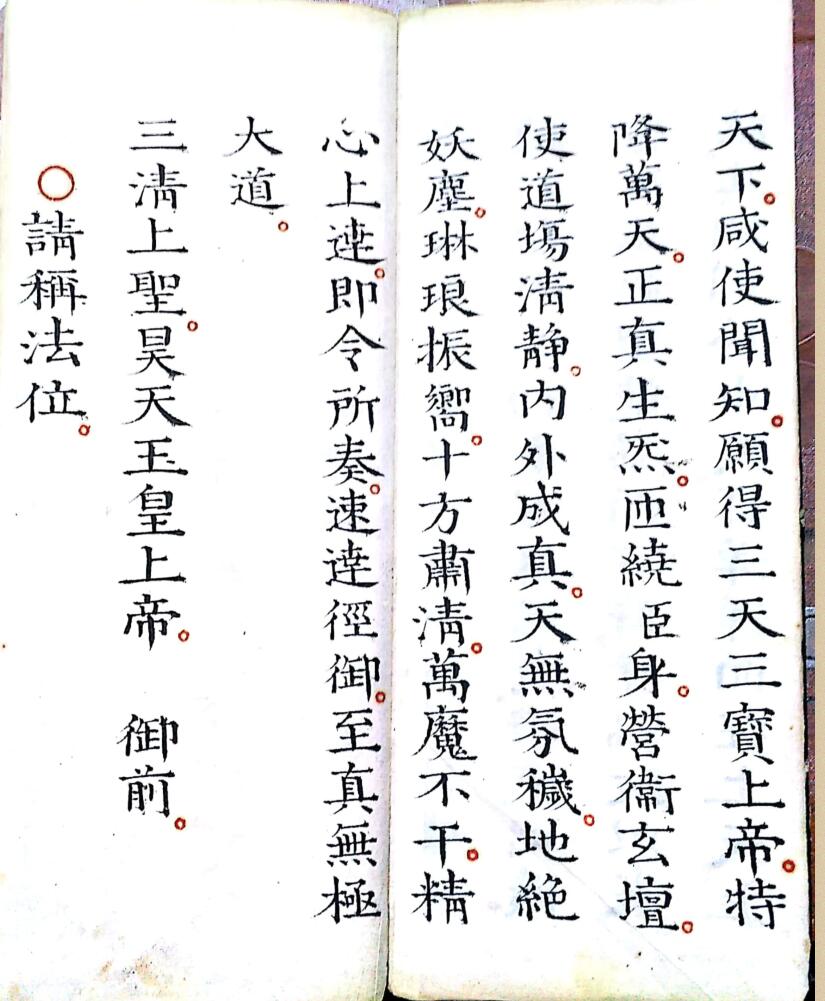 天下。咸使聞知。願得三天三寶上帝。特
降萬天。正真生炁。匝繞臣身。營衞玄壇。
使道塲清静。内外成真。天無氛穢。地絶
妖塵。琳琅振嚮。十方肅清。萬魔不干。精
心上達。即令所奏。速達徑御。至真無極
大道。
三清上聖。昊天玉皇上帝。 御前。
○請稱法位。